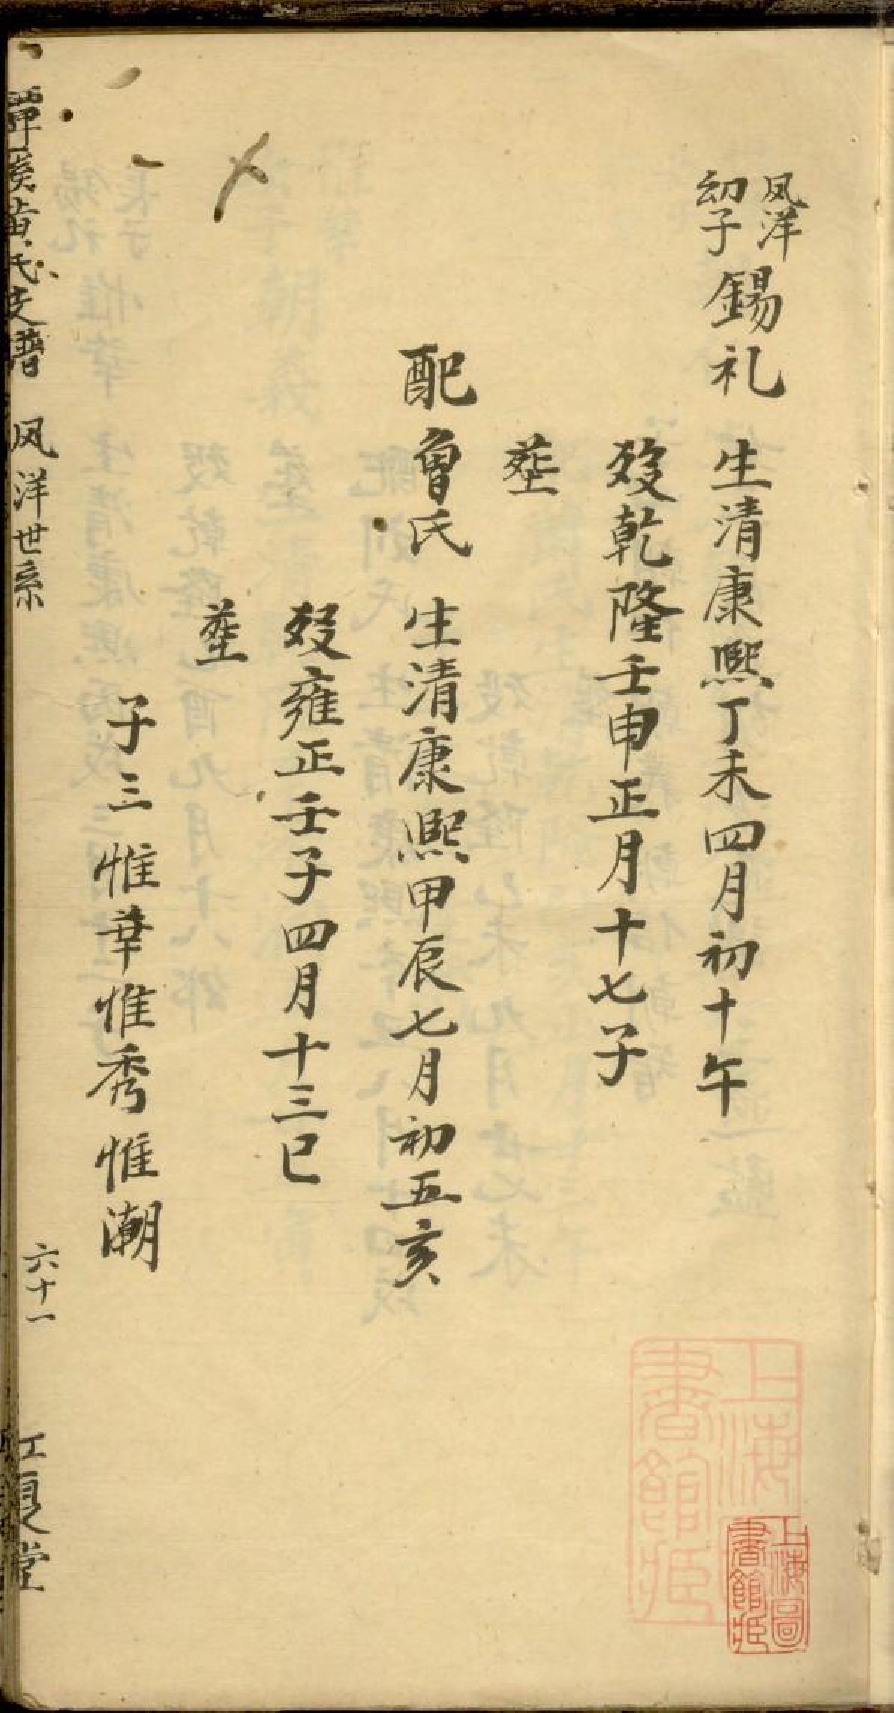 凤洋
幼子
錫礼
生清康熙丁未四月初十午
歿乾隆壬申正月十七子
塟
配曾氏
生清康熙甲辰七月初五亥
歿雍正壬子四月十三巳
塟
子三惟華惟秀惟潮
黄氏支譜 凤洋世系 六十一 江夏堂
上海圖
書館藏
上海圖
書館藏